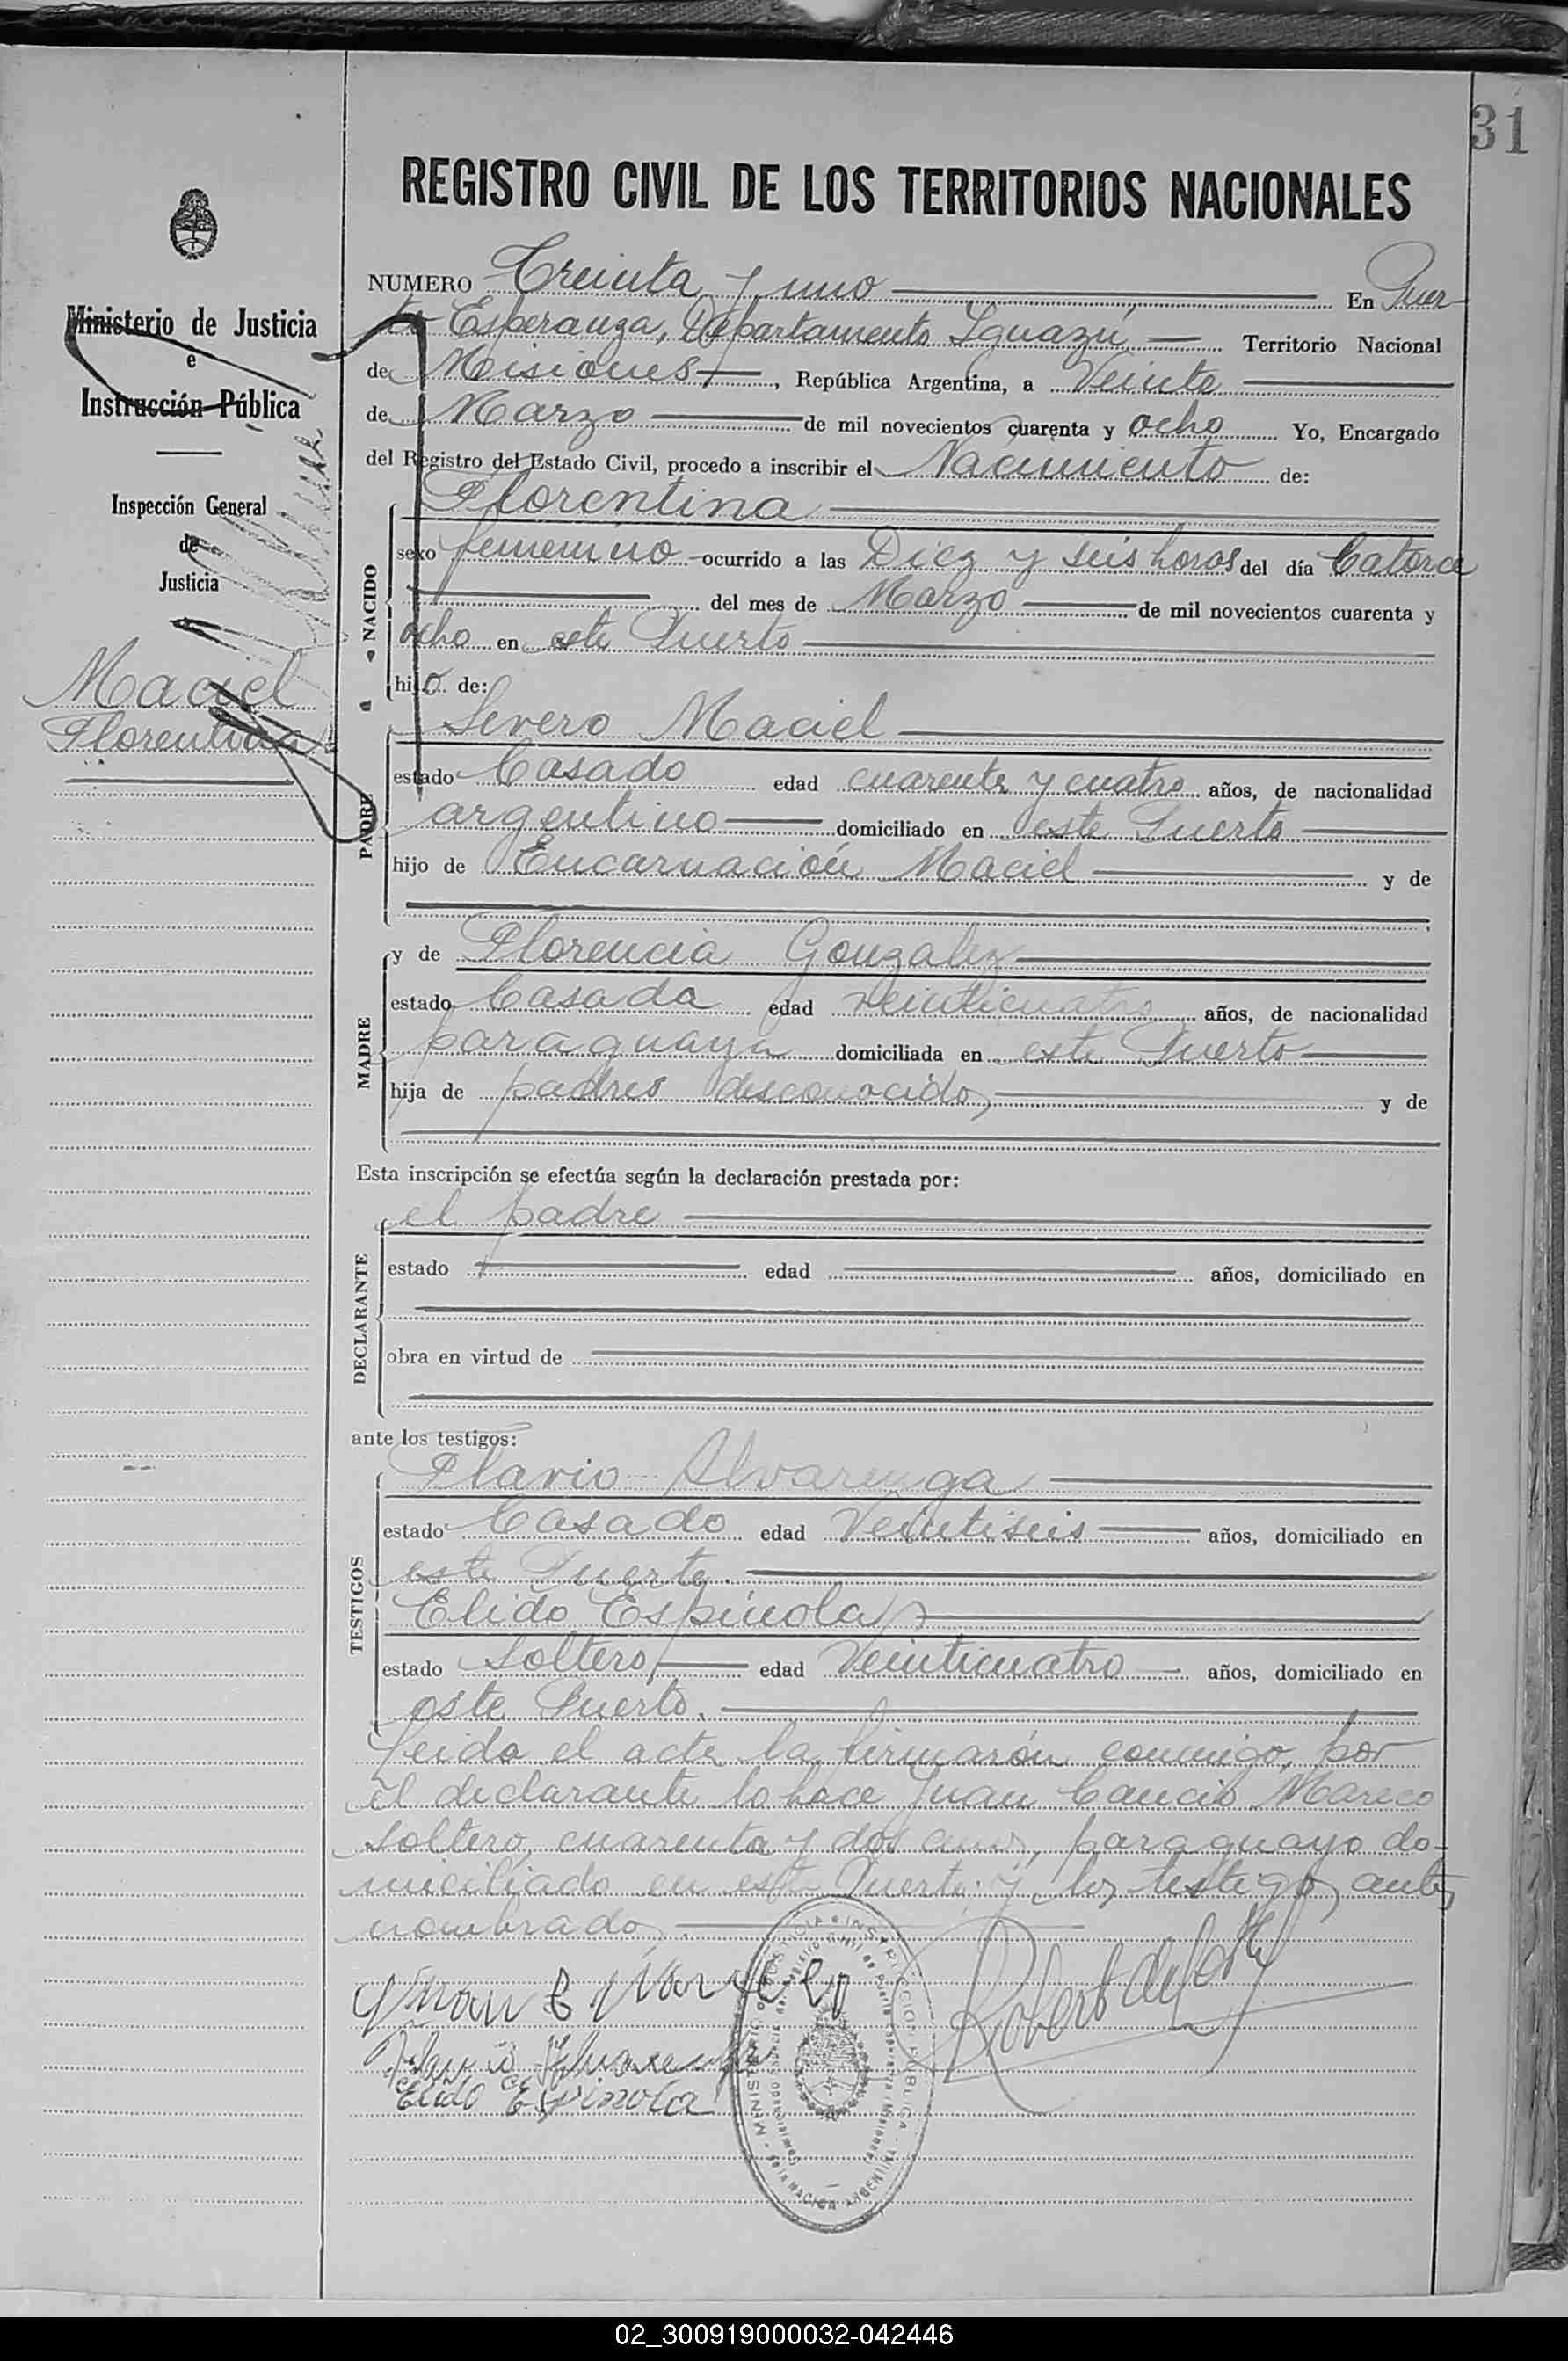 31
REGISTRO CIVIL DE LOS TERRITORIOS NACIONALES
Ministerio de Justicia
e
Instrucción Pública
Inspección General
de
Justicia
Maciel
Florentina
NUMERO Treinta y uno En Puer
to Esperanza, Departamento Iguazú, Territorio Nacional
de Misiones, República Argentina, a Veinte
de Marzo de mil novecientos cuarenta y ocho Yo, Encargado
del Registro del Estado Civil, procedo a inscribir el Nacimiento de:
NACIDO
Florentina
sexo femenino ocurrido a las Diez y seis horas del día Catorce
del mes de Marzo de mil novecientos cuarenta y
ocho en este Puerto
hijo de:
PADRE
Severo Maciel
estado Casado edad cuarenta y cuatro años, de nacionalidad
argentino domiciliado en este Puerto
hijo de Encarnación Maciel y de
MADRE
y de Florencia Gonzalez
estado Casada edad veinticuatro años, de nacionalidad
paraguaya domiciliada en este Puerto
hija de padres desconocidos y de
Esta inscripción se efectúa según la declaración prestada por:
DECLARANTE
el padre
estado edad años, domiciliado en
obra en virtud de
ante los testigos:
TESTIGOS
Flavio Alvarenga
estado Casado edad Veintiseis años, domiciliado en
este Puerto.
Elido Espinola
estado Soltero, edad Veinticuatro años, domiciliado en
este Puerto.
Leida el acta la firmarón conmigo, por
el declarante lo hace Juan Cancio Mareco
soltero, cuarenta y dos años, paraguayo do-
miciliado en este Puerto y los testigos antes
nombrados.
Juan C Mareco
Flavio Alvarenga
Elido Espinola
02_300919000032-042446